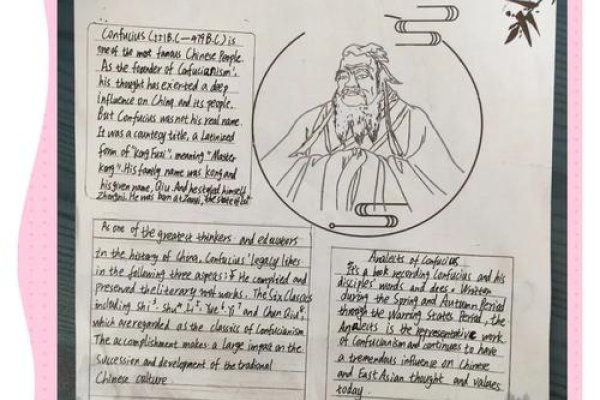 Confucius (551B.C—479B.C.) is
one of the most famous Chinese People.
As the founder of Confucianism,
his thought has exerted a deep
influence on China and its people.
But Confucius was not his real name.
It was a courtesy title, a Latinized
form of "Kong Fuzi", meaning "Master
Kong". His family name was Kong and
his given name, Qiu. And he styled himself
Zhongni. He was born at Zouyi, the state of Lu
As one of the greatest thinkers and educators
in the history of China, Confucius' legacy likes
in the following three aspects: He complied and
preserved the literary works. The Six Classics
including Shi, Shu, Li, Yue, Yi and Chun Qiu,
which are regarded as the classics of Confucianism
The accomplishment makes a large impat on the
succession and development of the traditional
Chinese culture
Analects of Confucius
It's a book recording Confucius and his
disciples' words and dees. Written
during the Spring and Autumn Period
through the Warring States Period, the
Analects is the representative work
of Confucianism and continues to have
a tremendous influence on Chinese
and East Asian thought and values
today.